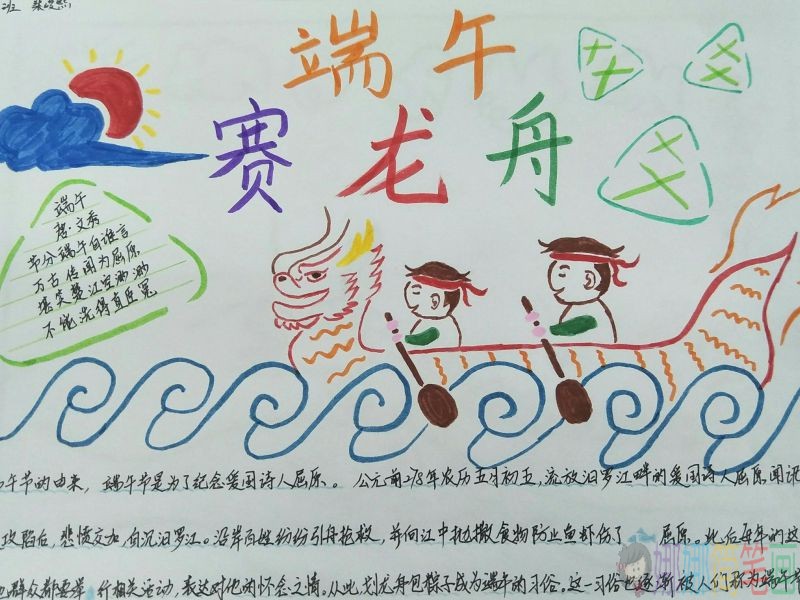 端午
赛龙舟
端午
唐·文秀
节分端午自谁言
万古传闻为屈原
堪笑楚江空渺渺
不能洗得直臣冤
午节的由来，端午节是为了纪念爱国诗人屈原。公元前278年农历五月初五，流放汨罗江畔的爱国诗人屈原闻讯
攻陷后，悲愤交加，自沉汨罗江。沿岸百姓纷纷引舟抢救，并向江中抛撒食物防止鱼虾伤了 屈原。此后每年的这
群众都要举行相关活动，表达对他的怀念之情。从此，划龙舟包粽子成为端午的习俗。这一习俗也逐渐被人们称为端午节